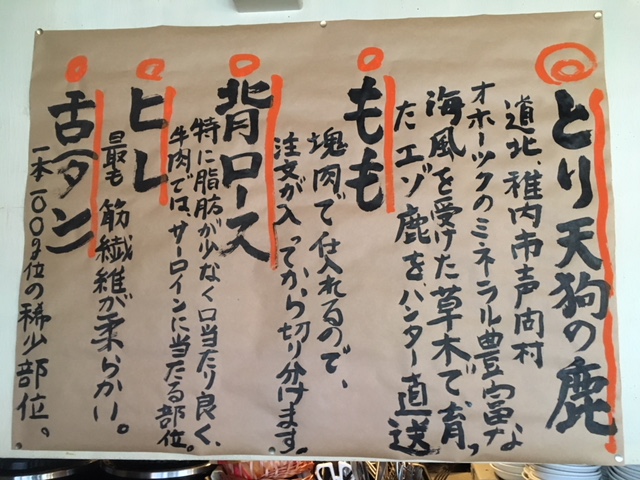 とり天狗の鹿
道北、稚内市声問村
オホーツクのミネラル豊富な
海風を受けた草木で育っ
たエゾ鹿を、ハンター直送
もも
塊肉で仕入れるので、
注文が入ってから切り分けます。
背ロース
特に脂肪が少なく口当たり良く、
牛肉では、サーロインに当たる部位。
ヒレ
最も筋繊維が柔らかい。
舌(タン)
一本一〇〇g位の稀少部位。